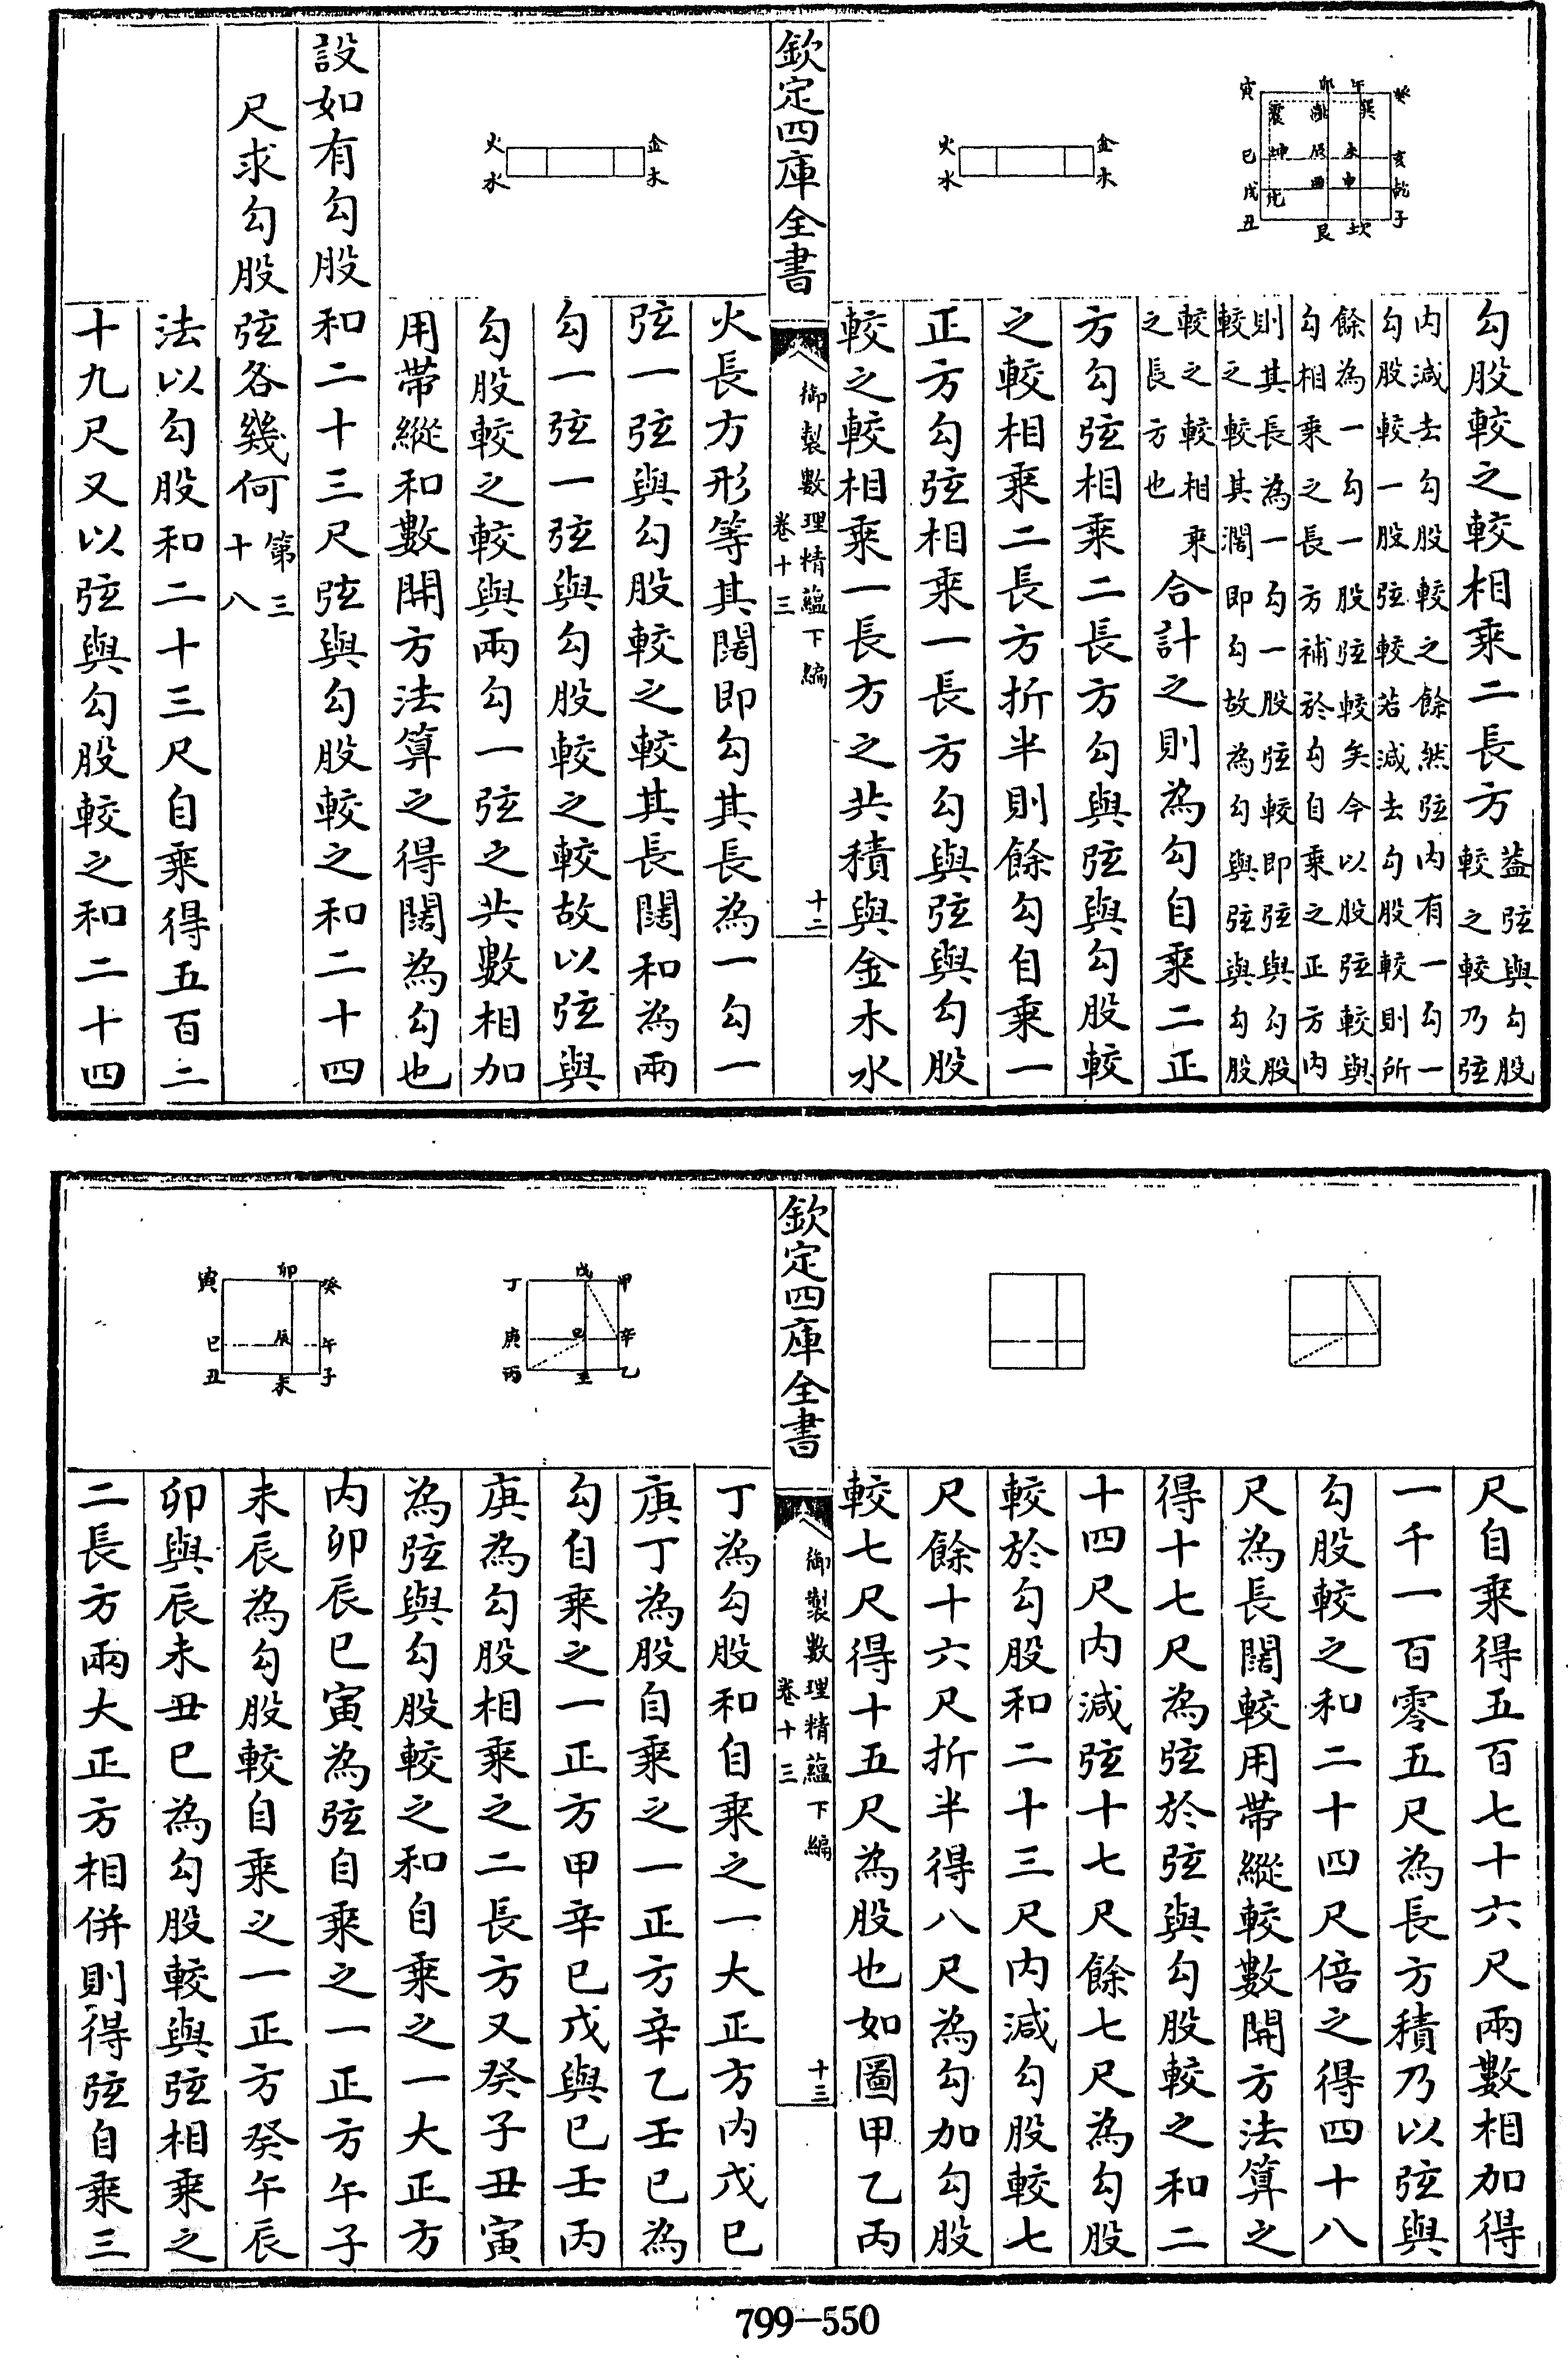 癸 午 卯 寅
巽 兆 震
亥 未 辰 坤 巳
乾 申 酉 兌 戌
子 坎 艮 丑
金 火
木 水
勾股較之較相乘二長方葢弦與勾股
較之較乃弦
内減去勾股較之餘然弦内有一勾一
勾股較一股弦較若減去勾股較則所
餘為一勾一股弦較矣今以股弦較與
勾相乘之長方補於勾自乘之正方内
則其長為一勾一股弦較即弦與勾股
較之較其濶即勾故為勾與弦與勾股
較之較相乘
之長方也
合計之則為勾自乘二正
方勾弦相乘二長方勾與弦與勾股較
之較相乘二長方折半則餘勾自乘一
正方勾弦相乘一長方勾與弦與勾股
較之較相乘一長方之共積與金木水
欽定四庫全書
御製數理精蘊下編
卷十三
十二
金 火
木 水
火長方形等其闊即勾其長為一勾一
弦一弦與勾股較之較其長闊和為兩
勾一弦一弦與勾股較之較故以弦與
勾股較之較與兩勾一弦之共數相加
用帶縱和數開方法算之得闊為勾也
設如有勾股和二十三尺弦與勾股較之和二十四
尺求勾股弦各幾何第三
十八
法以勾股和二十三尺自乘得五百二
十九尺又以弦與勾股較之和二十四
尺自乘得五百七十六尺兩數相加得
一千一百零五尺為長方積乃以弦與
勾股較之和二十四尺倍之得四十八
尺為長闊較用帶縱較數開方法算之
得十七尺為弦於弦與勾股較之和二
十四尺内減弦十七尺餘七尺為勾股
較於勾股和二十三尺内減勾股較七
尺餘十六尺折半得八尺為勾加勾股
較七尺得十五尺為股也如圖甲乙丙
欽定四庫全書
御製數理精蘊下編
卷十三
十三
甲 戊 丁
辛 己 庚
乙 壬 丙
癸 卯 寅
午 辰 巳
子 未 丑
丁為勾股和自乘之一大正方内戊已
庚丁為股自乘之一正方辛乙壬已為
勾自乘之一正方甲辛已戊與已壬丙
庚為勾股相乘之二長方又癸子丑寅
為弦與勾股較之和自乘之一大正方
内卯辰巳寅為弦自乘之一正方午子
未辰為勾股較自乘之一正方癸午辰
卯與辰未丑巳為勾股較與弦相乘之
二長方兩大正方相併則得弦自乘三
799-550